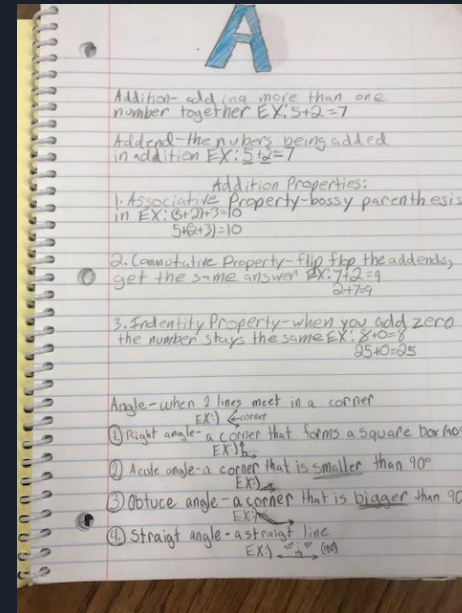 A
Addition- adding more than one
number together EX: 5+2=7
Addend-the nubers being added
in addition EX: 5+2=7
Addition Properties:
1. Associative Property-bossy parenthesis
in EX: (5+2)+3=10
5+(2+3)=10
2. Commotative Property-flip flop the addends,
get the same answer EX: 7+2=9
2+7=9
3. Indentity Property-when you add zero
the number stays the same EX: 8+0=8
25+0=25
Angle-when 2 lines meet in a corner
EX:) corner
① Right angle-a corner that forms a square box
EX:)
② Acute angle-a corner that is smaller than 90°
EX:)
③ Obtuce angle-a corner that is bigger than 90
EX:)
④ Straigt angle-a straigt line
EX:) (180)